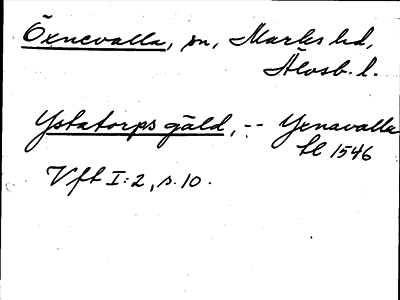 Öxnevalla, sn, Marks hd,
Älvsb. l.
Ystatorps gäld, -- Yxnavalla
tl 1546
Vft I:2, s. 10.